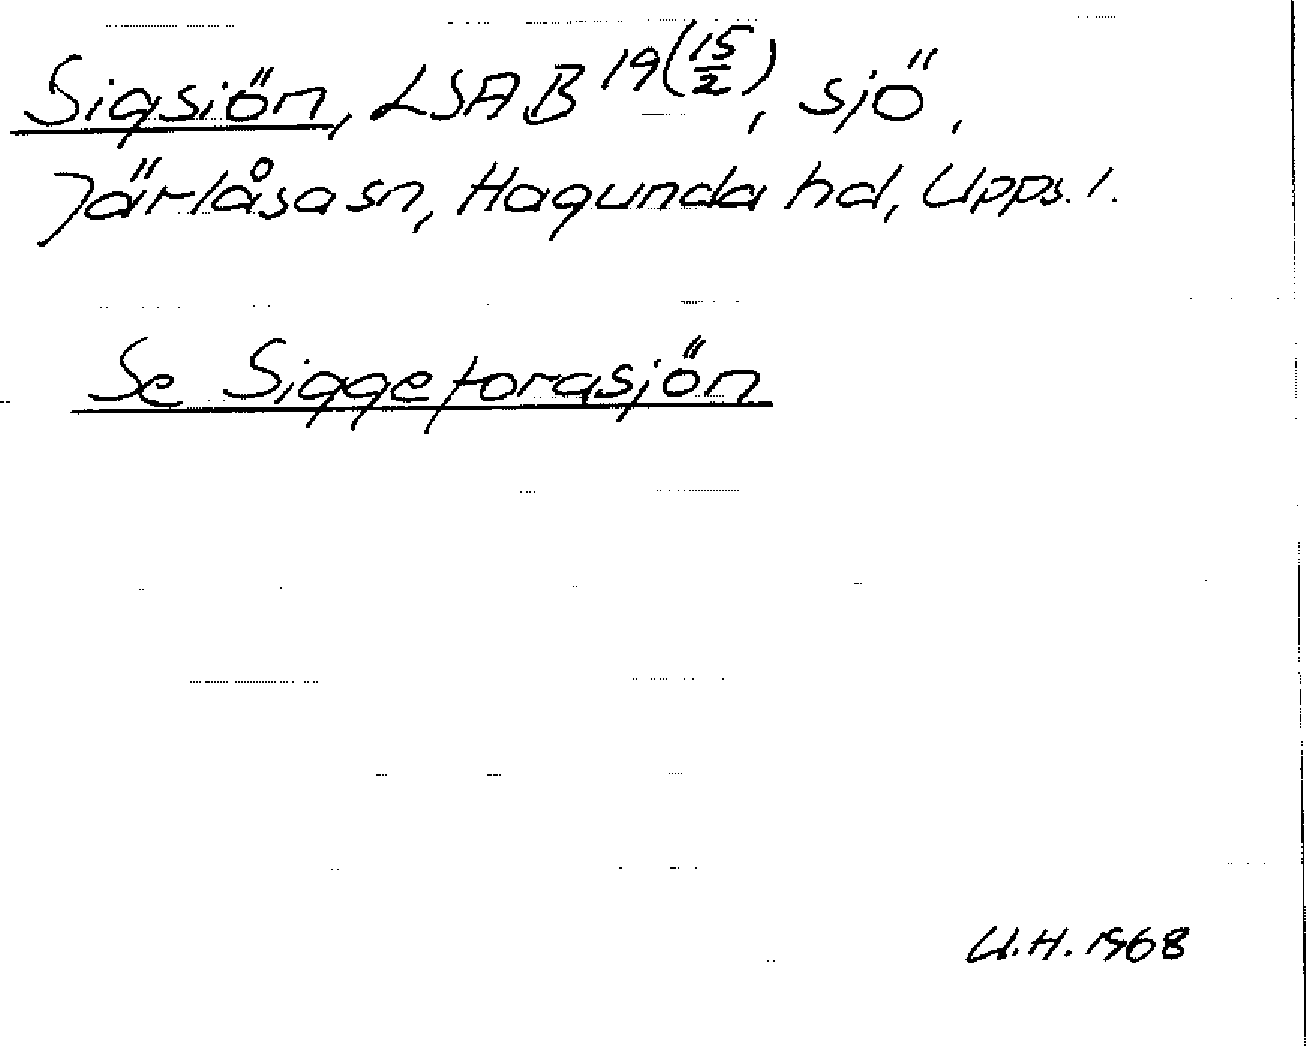 Sigsjön, LSA B 19 (15/2), sjö,
Järlåsa sn, Hagunda hd, Upps. l.
Se Siggeforasjön
U.H. 1968